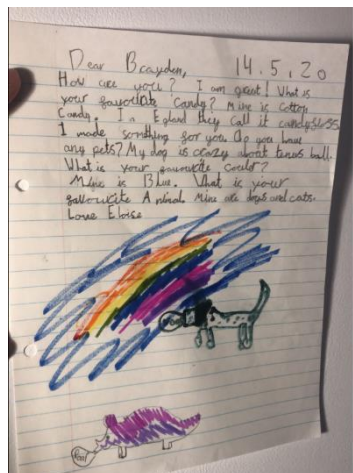 Dear Brayden, 14.5.20
How are you? I am great! What is
your favourite candy? Mine is Cotton
Candy. In England they call it candyfloss.
I made something for you. Do you have
any pets? My dog is crazy about tenas ball.
What is your favourite coulor?
Mine is Blue. What is your
favourite Animal Mine are dogs and cats.
Love Eloise